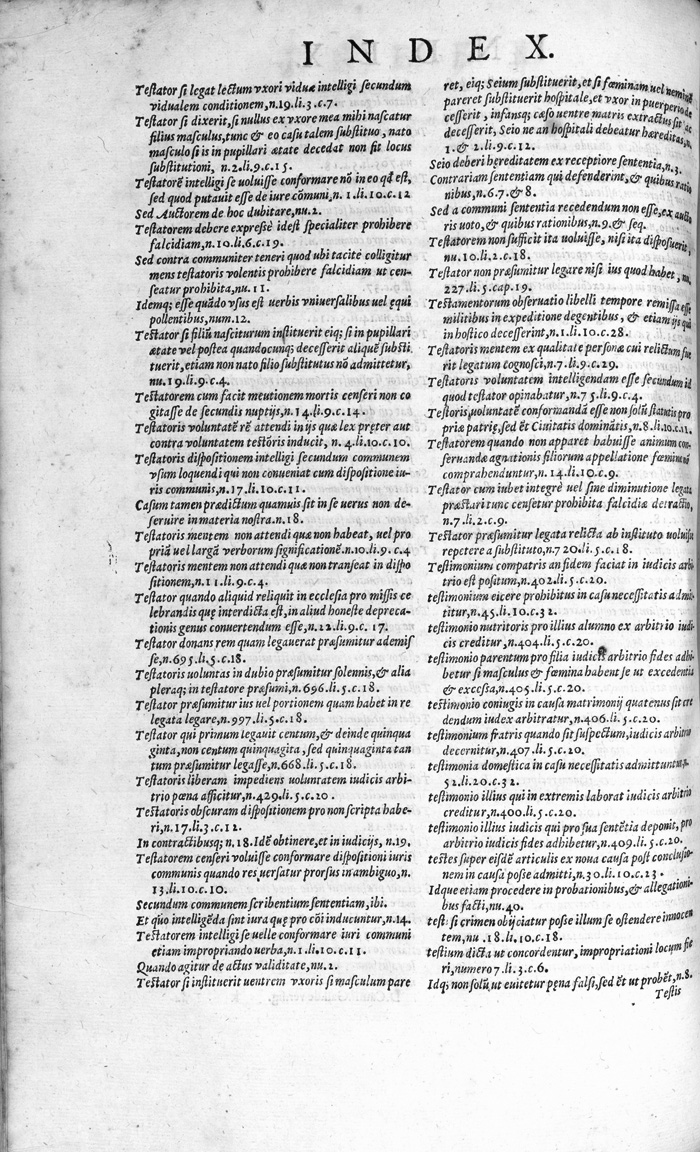 INDEX.
Testator si legat lectum vxori viduæ intelligi secundum
vidualem conditionem, n.19.li.3.c.7.
Testator si dixerit, si nullus ex vxore mea mihi nascatur
filius masculus, tunc & eo casu talem substituo, nato
masculo si is in pupillari ætate decedat non fit locus
substitutioni, n.2.li.9.c.15.
Testatorē intelligi se uoluisse conformare nō in eo qđ est,
sed quod putauit esse de iure cōmuni, n.1.li.10.c.12
Sed Auctorem de hoc dubitare, nu.2.
Testatorem debere expressè idest specialiter prohibere
falcidiam, n.10.li.6.c.19.
Sed contra communiter teneri quod ubi tacitè colligitur
mens testatoris volentis prohibere falcidiam ut cen-
seatur prohibita, nu.11.
Idemq; esse quādo vsus est uerbis vniuersalibus uel ęqui
pollentibus, num.12.
Testator si filiū nasciturum instituerit eiq; si in pupillari
ætate vel postea quandocunq; decesserit aliquē substi
tuerit, etiam non nato filio substitutus nō admittetur,
nu.19.li.9.c.4.
Testatorem cum facit meutionem mortis censeri non co
gitasse de secundis nuptijs, n.14.li.9.c.14.
Testatoris voluntatē rē attendi in ijs quæ lex pręter aut
contra voluntatem testōris inducit, n.4.li.10.c.10.
Testatoris dispositionem intelligi secundum communem
vsum loquendi qui non conueniat cum dispositione iu-
ris communis, n.17.li.10.c.11.
Casum tamen prædictum quamuis sit in se uerus non de-
seruire in materia nostra.n.18.
Testatoris mentem non attendi quæ non habeat, uel pro
priā uel largā verborum significationē.n.10.li.9.c.4
Testatoris mentem non attendi quæ non transeat in dispo
sitionem, n.11.li.9.c.4.
Testator quando aliquid reliquit in ecclesia pro missis ce
lebrandis quę interdicta est, in aliud honeste depreca-
tionis genus conuertendum esse, n.22.li.9.c.17.
Testator donans rem quam legauerat præsumitur ademis
se, n.695.li.5.c.18.
Testatoris voluntas in dubio præsumitur solennis, & alia
pleraq; in testatore præsumi, n.696.li.5.c.18.
Testator præsumitur ius uel portionem quam habet in re
legata legare, n.997.li.5.c.18.
Testator qui primum legauit centum, & deinde quinqua
ginta, non centum quinquagita, sed quinquaginta tan
tum præsumitur legasse, n.668.li.5.c.18.
Testatoris liberam impediens uoluntatem iudicis arbi-
trio pœna afficitur, n.429.li.5.c.20.
Testatoris obscuram dispositionem pro non scripta habe-
ri, n.17.li.3.c.12.
In contractibusq; n.18. Idē obtinere, et in iudicijs, n.19.
Testatorem censeri voluisse conformare dispositioni iuris
communis quando res uersatur prorsus in ambiguo, n.
13.li.10.c.10.
Secundum communem scribentium sententiam, ibi.
Et qūo intelligēda sint iura quę pro cōi inducuntur, n.14.
Testatorem intelligi se uelle conformare iuri communi
etiam impropriando uerba, n.1.li.10.c.11.
Quando agitur de actus validitate, nu.2.
Testator si instituerit uentrem vxoris si masculum pare
ret, eiq; Seium substituerit, et si fœminam uel neminem
pareret substituerit hospitale, et vxor in puerperio de
cesserit, infansq; cæso uentre matris extractus sit &
decesserit, Seio ne an hospitali debeatur hæreditas, n.
1.& 2.li.9.c.12.
Seio deberi hęreditatem ex receptiore sententia, n.3.
Contrariam sententiam qui defenderint, & quibus ratio
nibus, n.6.7.& 8.
Sed a communi sententia recedendum non esse, ex aucto
ris uoto, & quibus rationibus, n.9.& seq.
Testatorem non sufficit ita uoluisse, nisi ita disposuerit,
nu.10.li.2.c.18.
Testator non præsumitur legare nisi ius quod habet, nu.
227.li.5.cap.19.
Testamentorum obseruatio libelli tempore remissa esse
militibus in expeditione degentibus, & etiam ijs qui
in hostico decesserint, n.1.li.10.c.28.
Testatoris mentem ex qualitate personæ cui relictum fue
rit legatum cognosci, n.7.li.9.c.29.
Testatoris voluntatem intelligendam esse secundum id
quod testator opinabatur, n.75.li.9.c.4.
Testoris, uoluntatē conformandā esse non solū statutis pro
priæ patrię, sed et Ciuitatis dominātis, n.8.li.10.c.11.
Testatorem quando non apparet habuisse animum con-
seruandæ agnationis filiorum appellatione fœminā nō
comprahenduntur, n.14.li.10.c.9.
Testator cum iubet integrè vel sine diminutione legata
præstari tunc censetur prohibita falcidiæ detractio,
n.7.li.2.c.9.
Testator præsumitur legata relicta ab instituto uoluisse
repetere a substituto, n.720.li.5.c.18.
Testimonium compatris an fidem faciat in iudicis arbi
trio est positum, n.402.li.5.c.20.
testimonium eicere prohibitus in casu necessitatis admit
titur, n.45.li.10.c.32.
testimonio nutritoris pro illius alumno ex arbitrio iudi
cis creditur, n.404.li.5.c.20.
testimonio parentum pro filia iudicis arbitrio fides adhi-
betur si masculus & fœmina habent se ut excedentia
& excessa, n.405.li.5.c.20.
testimonio coniugis in causa matrimonij quatenus sit cre
dendum iudex arbitratur, n.406.li.5.c.20.
testimonium fratris quando sit suspectum, iudicis arbitrio
decernitur, n.407.li.5.c.20.
testimonia domestica in casu necessitatis admittuntur, n.
52.li.20.c.32.
testimonio illius qui in extremis laborat iudicis arbitrio
creditur, n.400.li.5.c.20.
testimonio illius iudicis qui pro sua sentētia deponis, pro
arbitrio iudicis fides adhibetur, n.409.li.5.c.20.
testes super eisdē articulis ex noua causa post conclusio-
nem in causa posse admitti, n.30.li.10.c.23.
Idque etiam procedere in probationibus, & allegationi-
bus facti, nu.40.
testi si crimen obijciatur posse illum se ostendere innocen
tem, nu.18.li.10.c.18.
testium dicta ut concordentur, impropriationi locum fie
ri, numero 7.li.3.c.6.
Idq; non solū, ut euitetur pęna falsi, sed ēt ut probēt, n.8.
Testis